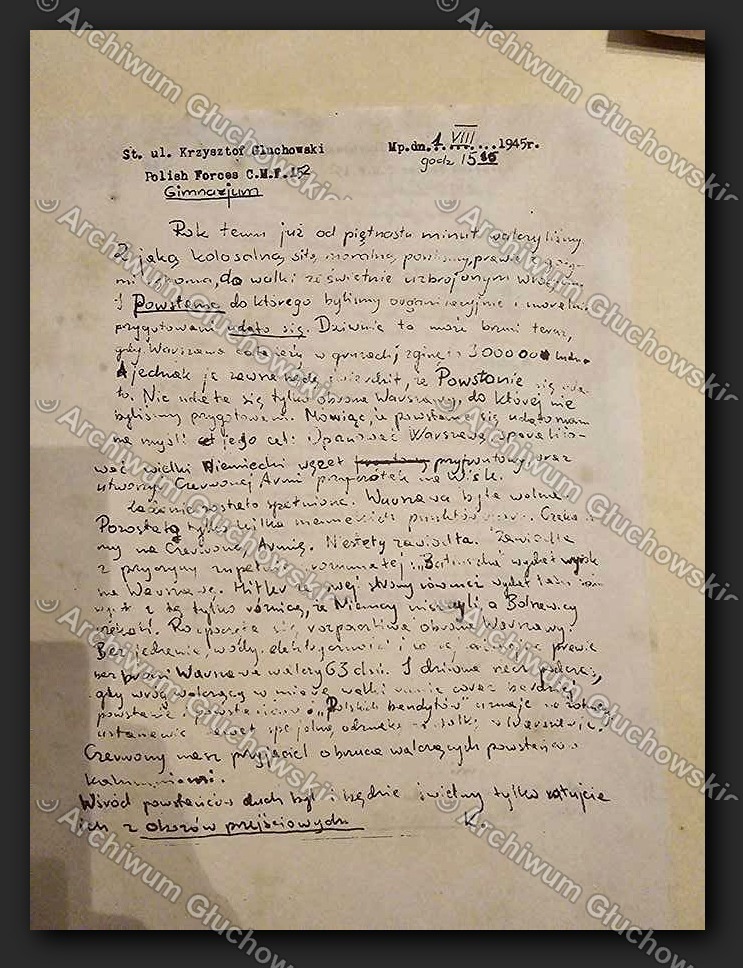 St. ul. Krzysztof Głuchowski
Polish Forces C.M.F. 152
Gimnazjum
Mp.dn. 1. VIII ...1945r.
godz 15 15
Rok temu już od piętnastu minut walczyliśmy.
Z jaką kolosalną siłą moralną poszliśmy, prawie z goły-
mi rękoma, do walki ze świetnie uzbrojonym wrogiem.
I Powstanie do którego byliśmy organizacyjnie i moralnie
przygotowani udało się. Dziwnie to może brzmi teraz,
gdy Warszawa cała leży w gruzach, zginęło 300000 ludzi
A jednak ja zawsze będę twierdził, że Powstanie się uda-
ło. Nie udała się tylko obrona Warszawy, do której nie
byliśmy przygotowani. Mówiąc, że powstanie się udało mam
na myśli jego cel: Opanować Warszawę, sparaliżo-
wać wielki Niemiecki węzeł przyfrontowy, oraz
utworzyć Czerwonej Armii przyczółek na Wiśle.
Zadanie zostało spełnione. Warszawa była wolna.
Pozostało tylko kilka niemieckich punktów oporu. Czekaliś-
my na Czerwoną Armię. Niestety zawiodła. Zawiodła
z przyczyny zupełnie zrozumiałej: wydał wyrok
na Warszawę. Hitler ze swej strony również wydał taki sam
wyrok z tą tylko różnicą, że Niemcy niszczyli a Bolszewicy
czekali. Rozpoczęła się rozpaczliwa obrona Warszawy.
Bez jedzenia, wody, elektryczności i co najważniejsze prawie
bez broni Warszawa walczy 63 dni. I dziwna rzecz podczas,
gdy wróg walczący w miarę walki coraz bardziej
powstanie i powstańców „Polskich bandytów" uznaje za żołnierzy
ustanawia nawet specjalną odznakę za walki w Warszawie.
Czerwony nasz przyjaciel obrzuca walczących powstańców
kalumniami.
Wśród powstańców duch był i będzie świetny tylko ratujcie
ich z obozów przejściowych K.
© Archiwum Głuchowskich